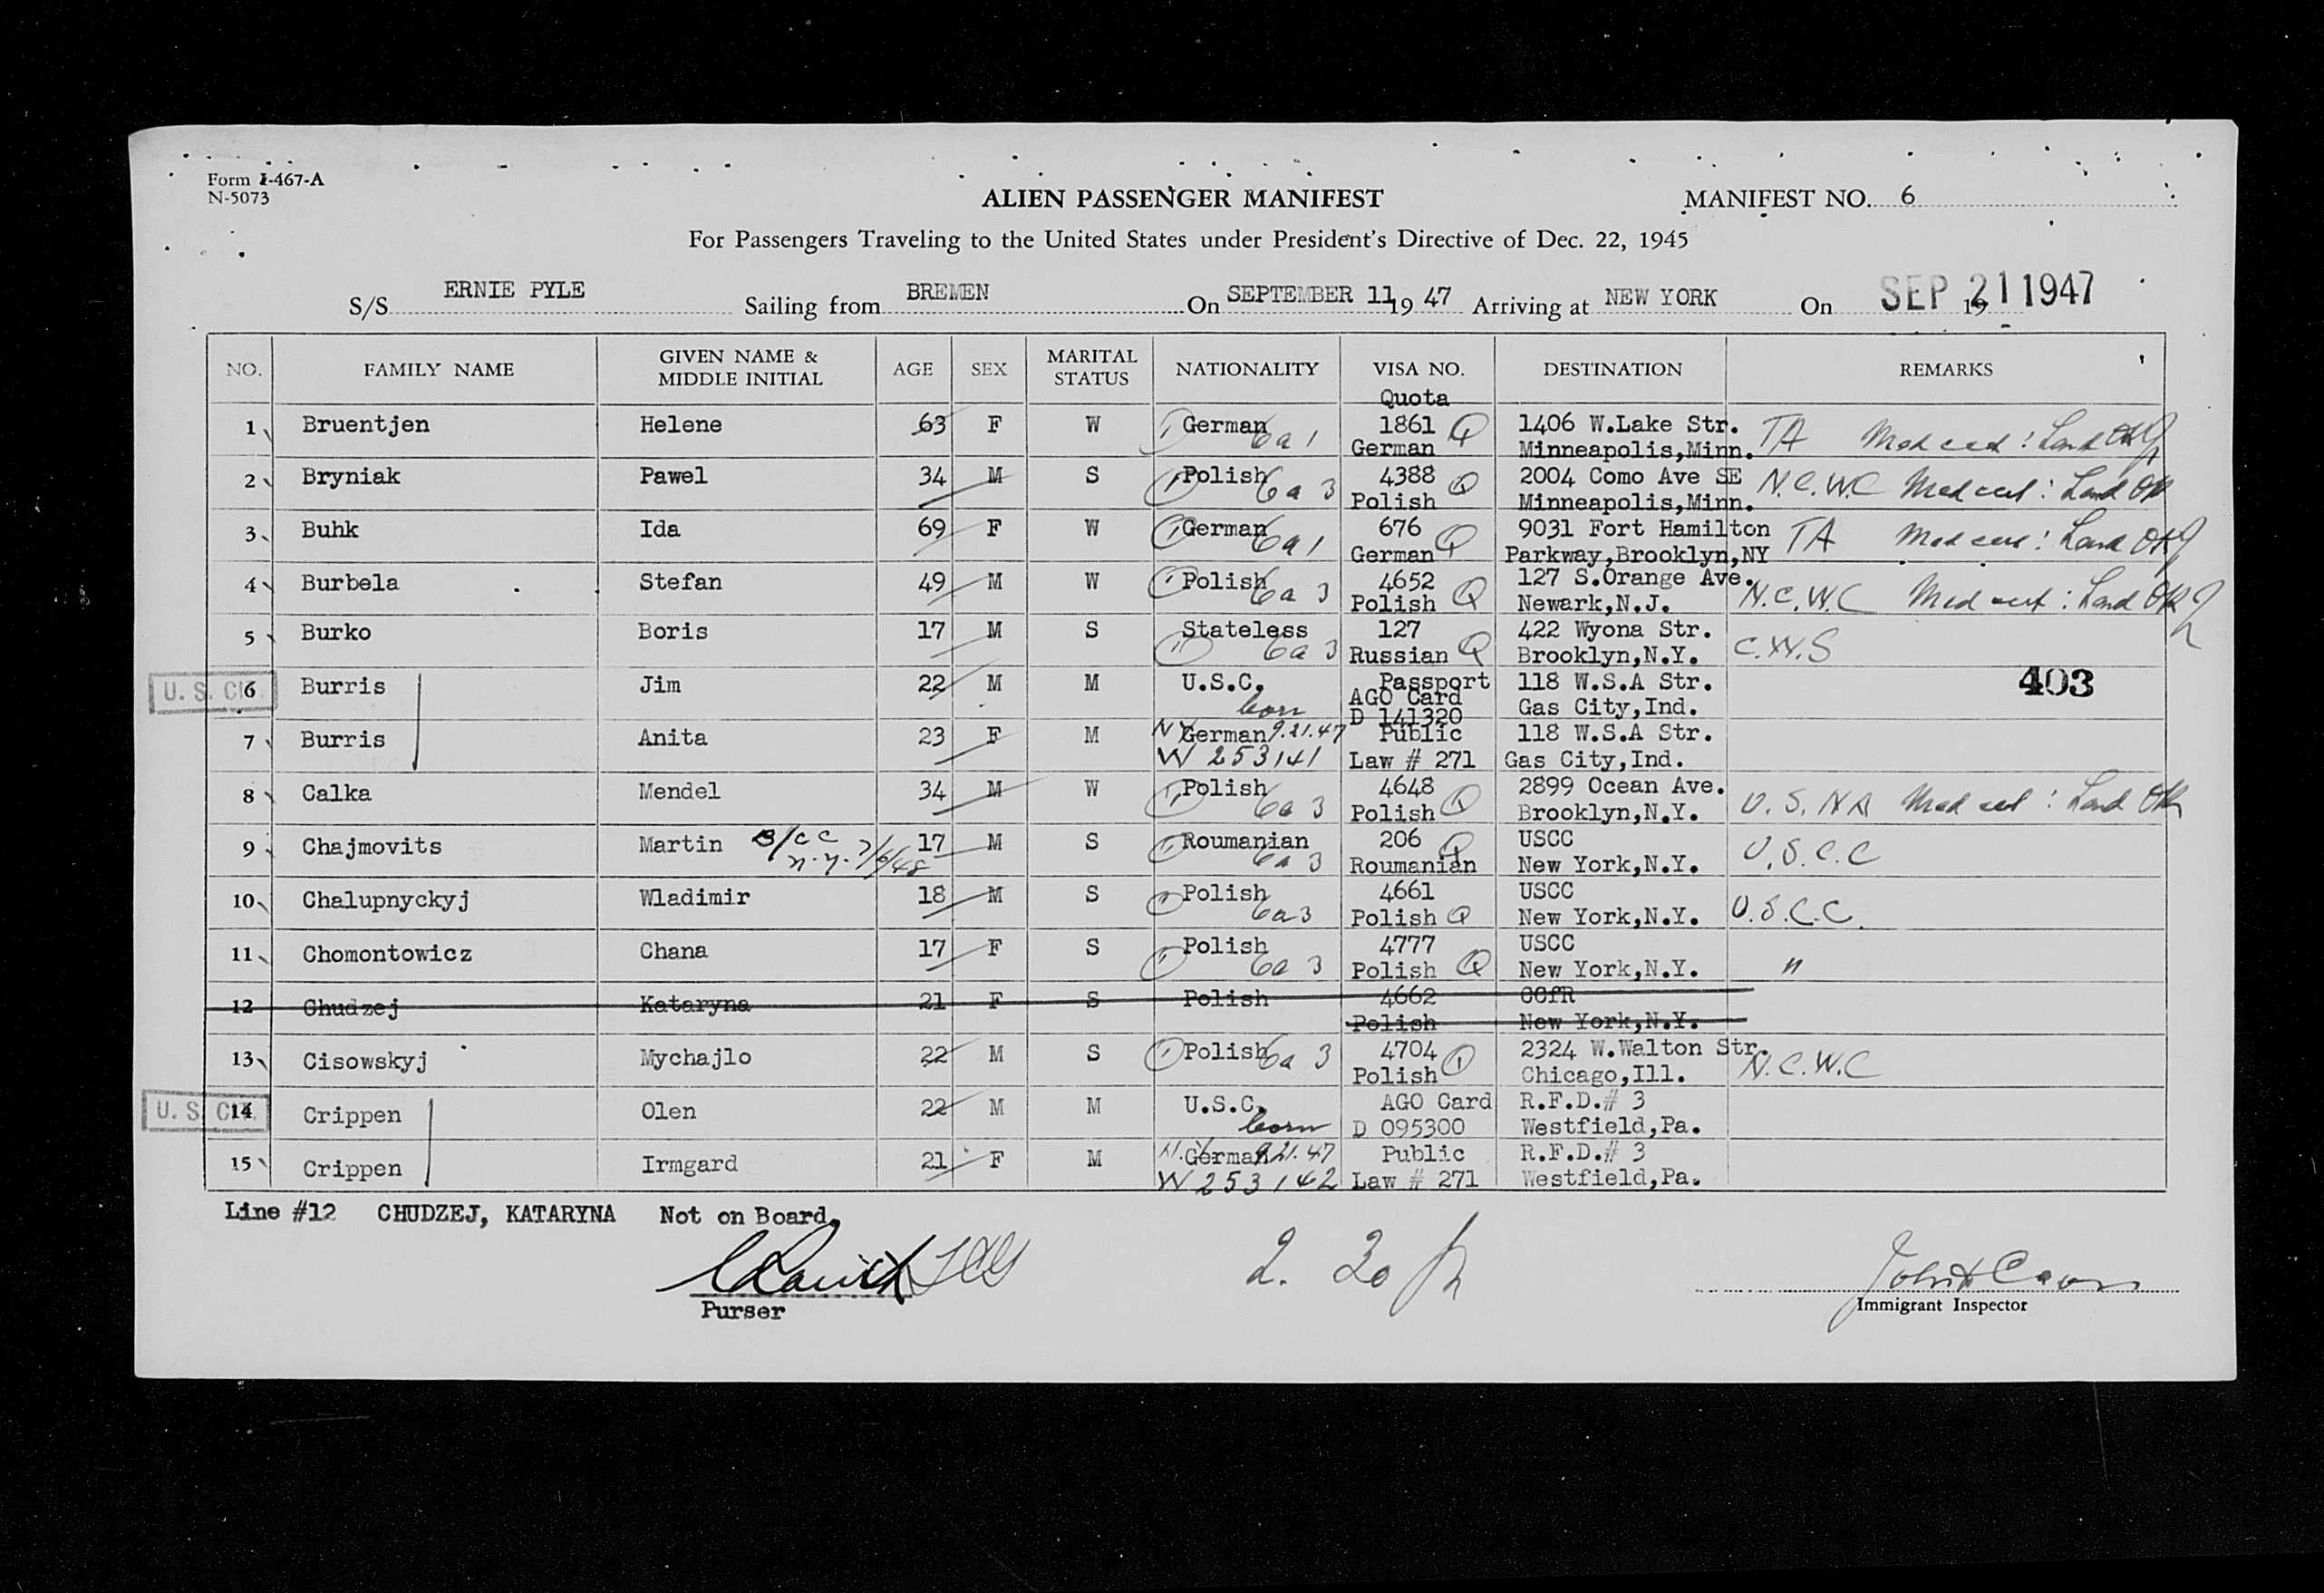 Form I-467-A
N-5073
ALIEN PASSENGER MANIFEST
MANIFEST NO. 6
For Passengers Traveling to the United States under President's Directive of Dec. 22, 1945
S/S ERNIE PYLE Sailing from BREMEN On SEPTEMBER 11 19 47 Arriving at NEW YORK On SEP 21 1947 19
NO. FAMILY NAME GIVEN NAME & MIDDLE INITIAL AGE SEX MARITAL STATUS NATIONALITY VISA NO. DESTINATION REMARKS
Quota
1 Bruentjen Helene 63 F W German 6a1 1861 Q 1406 W.Lake Str. TA Med cert: Land OK
German Minneapolis,Minn.
2 Bryniak Pawel 34 M S Polish 6a3 4388 Q 2004 Como Ave SE N.C.W.C Med cert: Land OK
Polish Minneapolis,Minn.
3 Buhk Ida 69 F W German 6a1 676 Q 9031 Fort Hamilton TA Med cert: Land OK
German Parkway,Brooklyn,NY
4 Burbela Stefan 49 M W Polish 6a3 4652 Q 127 S.Orange Ave. N.C.W.C Med cert: Land OK
Polish Newark,N.J.
5 Burko Boris 17 M S Stateless 6a3 127 Q 422 Wyona Str. C.W.S
Russian Brooklyn,N.Y.
U.S. CIT. 6 Burris Jim 22 M M U.S.C. born Passport 118 W.S.A Str. 403
AGO Card Gas City,Ind.
D 141320
7 Burris Anita 23 F M NY German 9.21.47 Public 118 W.S.A Str.
W 253141 Law # 271 Gas City,Ind.
8 Calka Mendel 34 M W Polish 6a3 4648 Q 2899 Ocean Ave. U.S.NA Med cert: Land OK
Polish Brooklyn,N.Y.
9 Chajmovits Martin B/CC N.Y. 7/6/48 17 M S Roumanian 6a3 206 Q USCC U.S.C.C
Roumanian New York,N.Y.
10 Chalupnyckyj Wladimir 18 M S Polish 6a3 4661 Q USCC U.S.C.C.
Polish New York,N.Y.
11 Chomontowicz Chana 17 F S Polish 6a3 4777 Q USCC "
Polish New York,N.Y.
12 Chudzej Kataryna 21 F S Polish 4662 CCfR
Polish New York,N.Y.
13 Cisowskyj Mychajlo 22 M S Polish 6a3 4704 Q 2324 W.Walton Str. N.C.W.C
Polish Chicago,Ill.
U.S. CIT. 14 Crippen Olen 22 M M U.S.C. born AGO Card R.F.D.# 3
D 095300 Westfield,Pa.
15 Crippen Irmgard 21 F M N.Y. German 9.21.47 Public R.F.D.# 3
W 253142 Law # 271 Westfield,Pa.
Line #12 CHUDZEJ, KATARYNA Not on Board.
2. 30
Purser
Immigrant Inspector